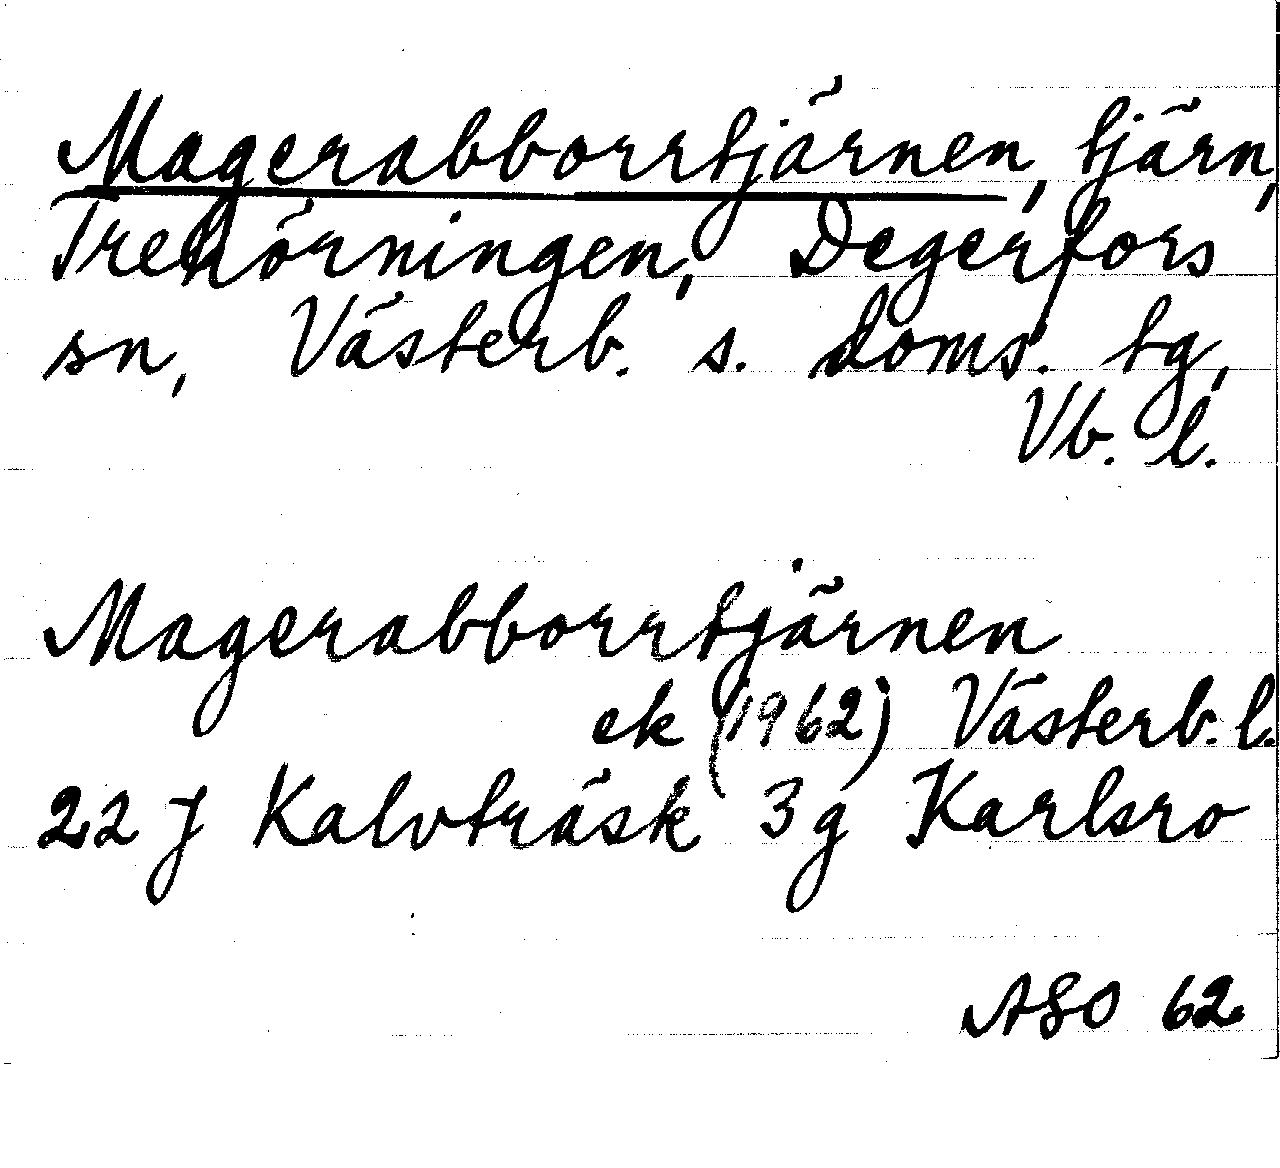 Magerabborrtjärnen, tjärn,
Trehörningen, Degerfors
sn, Västerb. s. doms. tg,
Vb. l.
Magerabborrtjärnen
ek (1962) Västerb. l.
22 J Kalvträsk 3g Karlsro
ASO 62